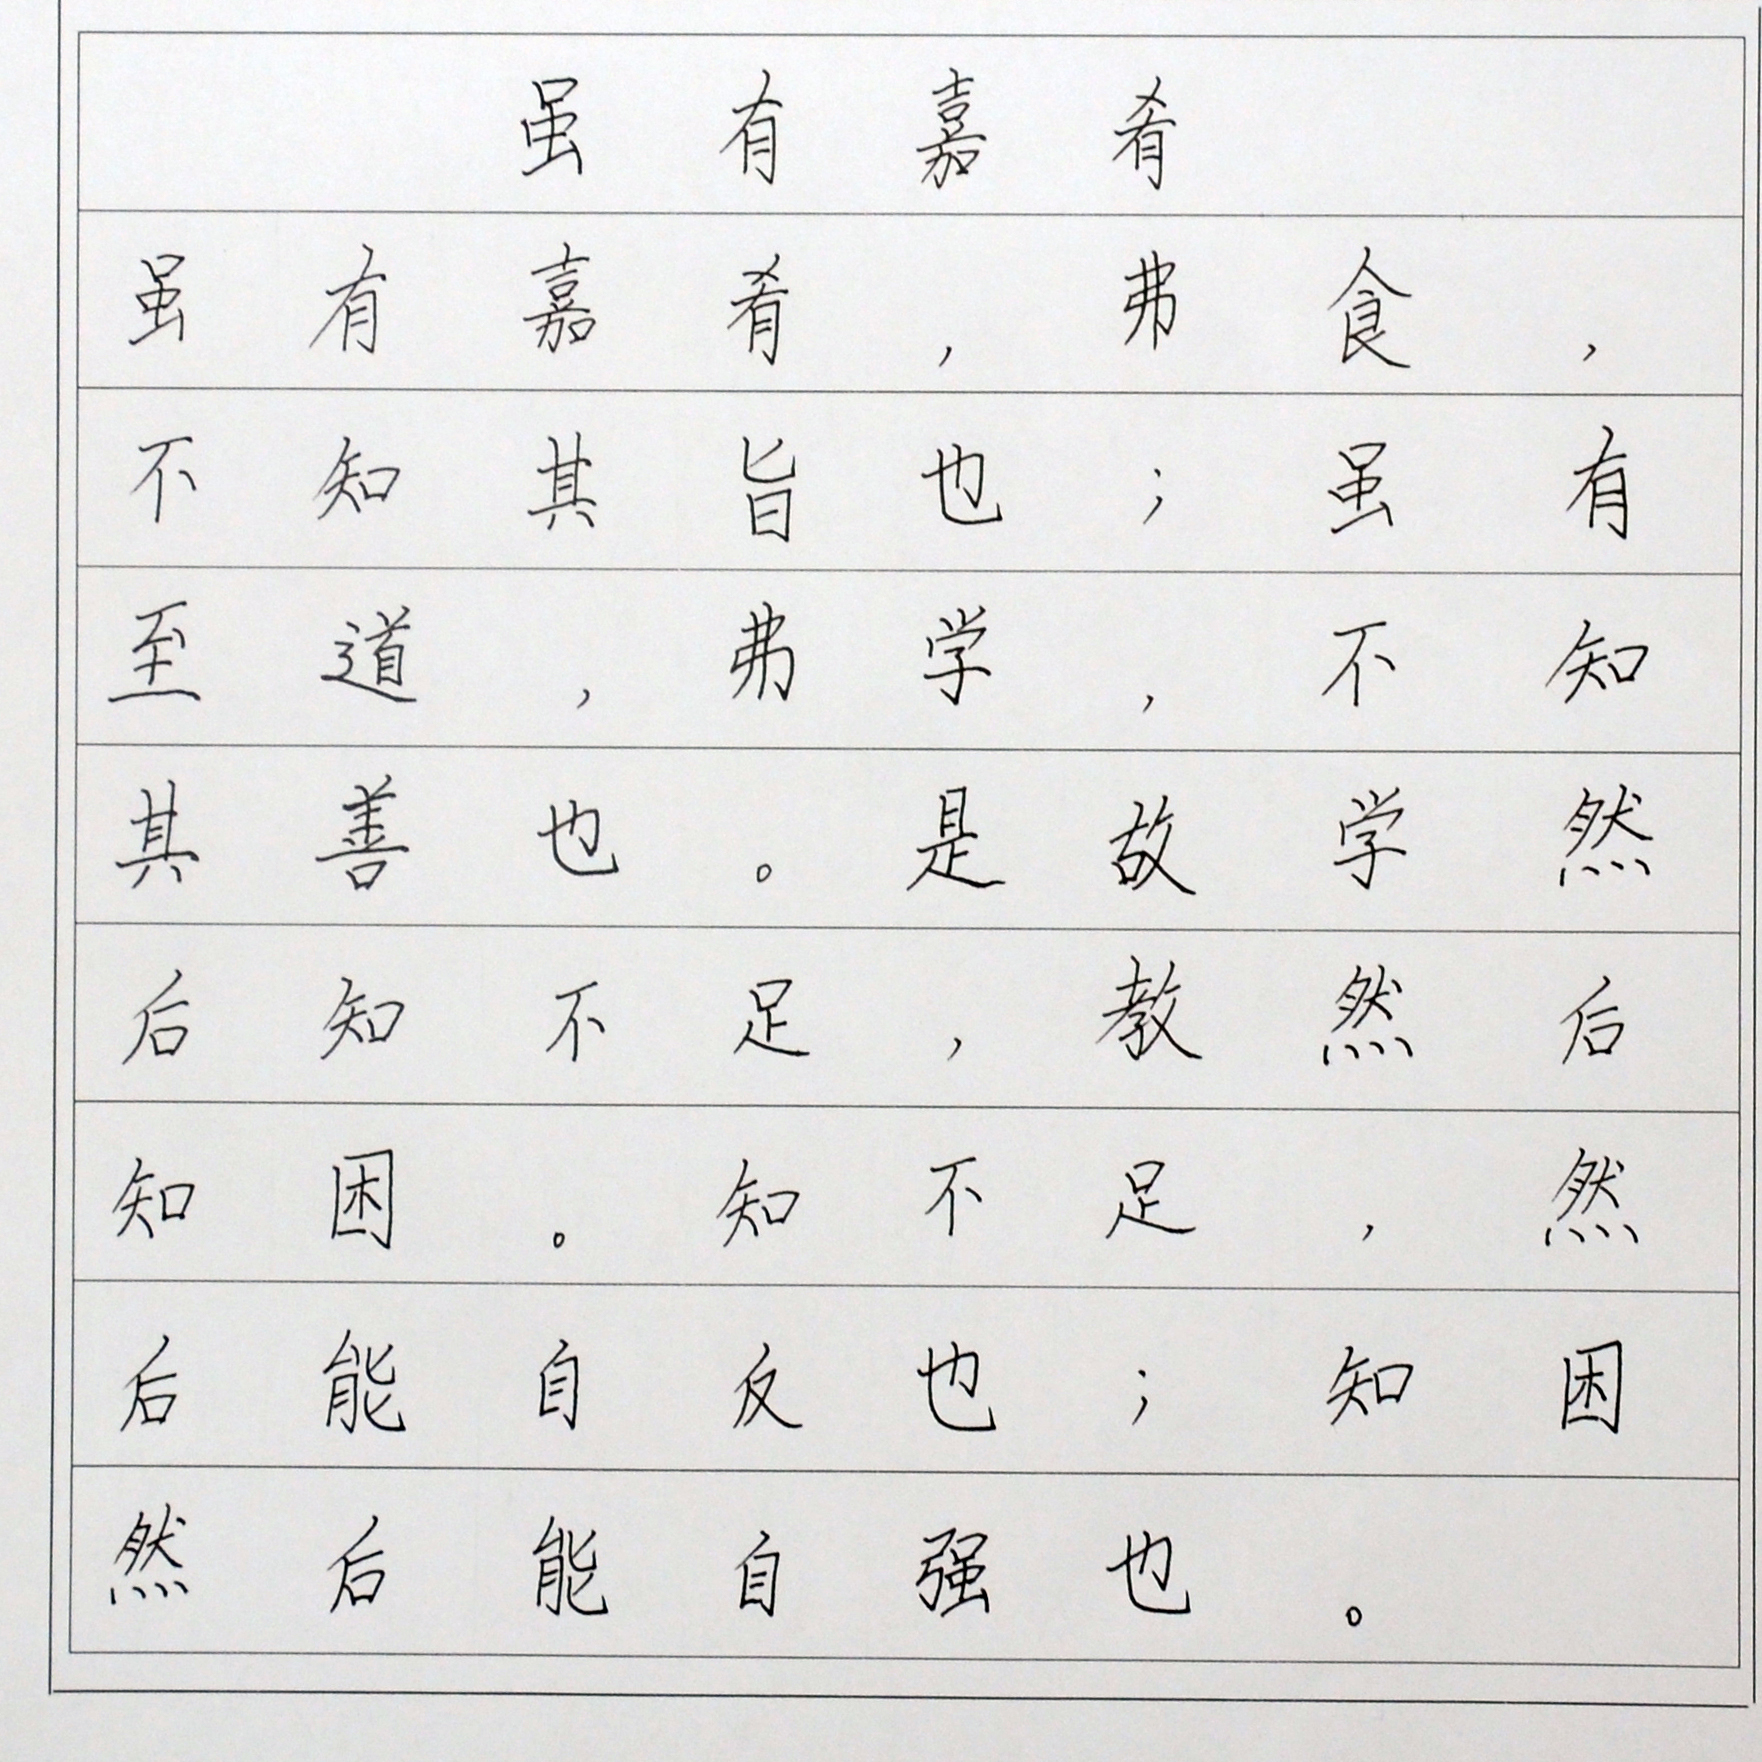 虽有嘉肴
虽有嘉肴，弗食，
不知其旨也；虽有
至道，弗学，不知
其善也。是故学然
后知不足，教然后
知困。知不足，然
后能自反也；知困
然后能自强也。